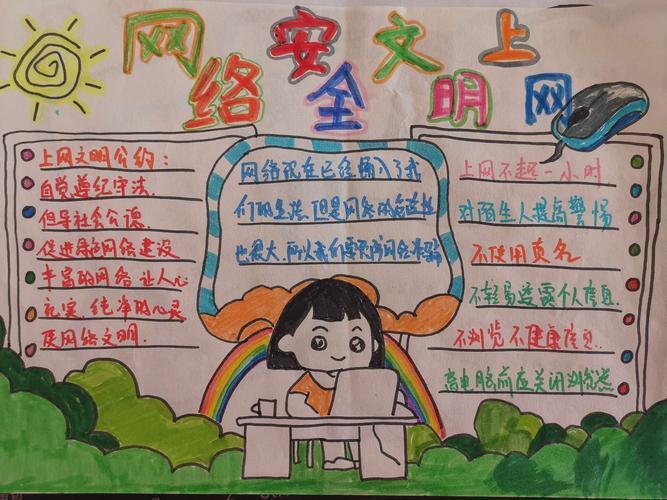 网络安全文明上网
上网文明公约:
自觉遵纪守法.
倡导社会公德.
促进绿色网络建设
丰富的网络让人心
实,纯净的心灵
使网络文明.
网络现在已经插入了我
们的生活.但是网络的危险性
也很大.所以我们要预防网络诈骗
上网不超一小时
对陌生人提高警惕
不使用真名
不轻易透露个人信息.
不浏览不健康信息.
离电脑前应关闭浏览器